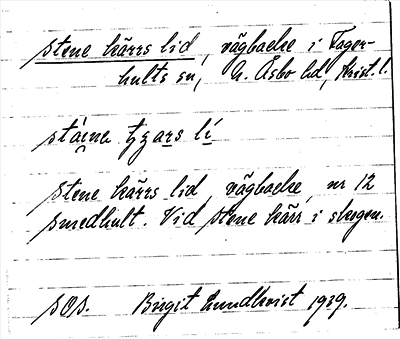 stene kärrs lid, vägbacke i Fager-
hults sn, N. Åsbo hd, Krist. l.
stene kärrs lid, vägbacke, nr 12
smedhult. Vid stene kärr i skogen.
SOS. Birgit Lundkvist 1939.